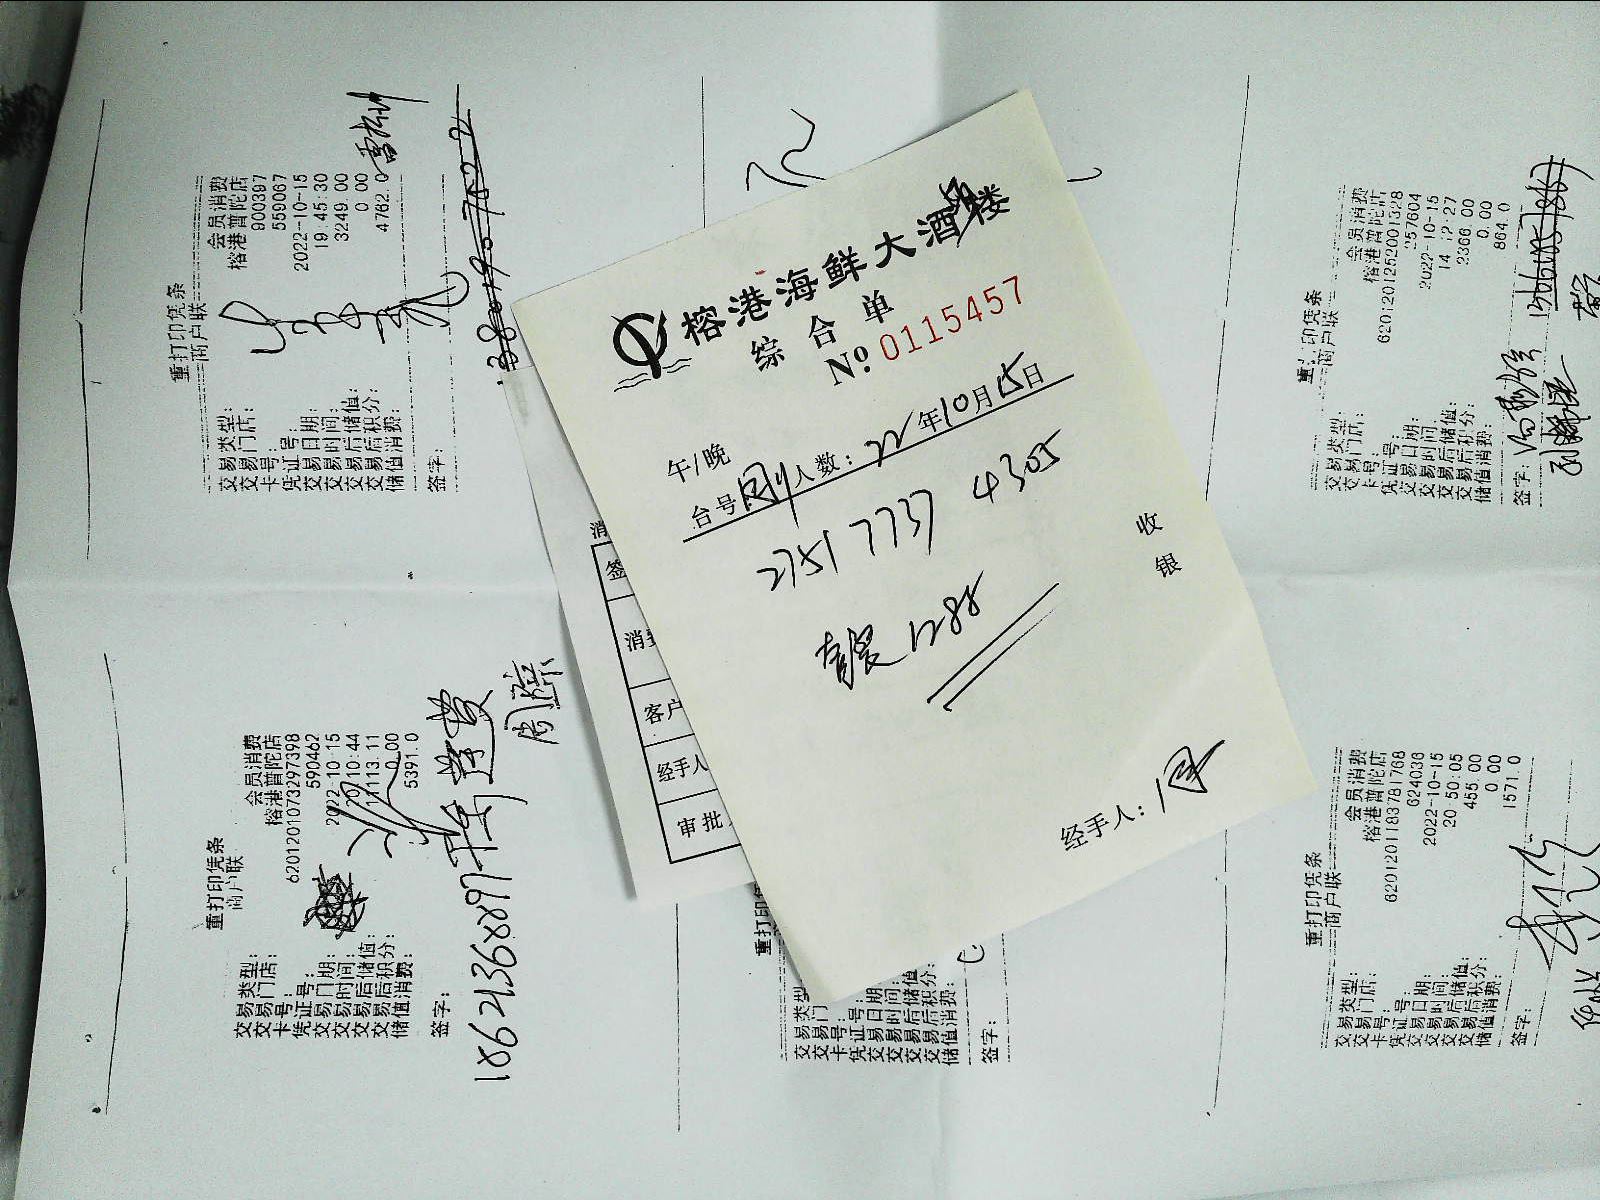 榕港海鲜大酒楼
综合单
No 0115457
午/晚
台号 人数: 22年10月15日
2751 7737 4305
1288
收银
经手人:
消
签
消费
客户
经手人
审批人
重打印凭条
商户联
交易类型: 会员消费
交易门店: 榕港普陀店
卡号: 900397
凭证号: 559067
交易日期: 2022-10-15
交易时间: 19:45:30
交易后储值: 3249.00
交易后积分: 0.00
储值消费: 4762.0
签字:
重打印凭条
商户联
交易类型: 会员消费
交易门店: 榕港普陀店
卡号: 6201201252001328
凭证号: 257604
交易日期: 2022-10-15
交易时间:
交易后储值: 2366.00
交易后积分: 0.00
储值消费: 864.0
签字:
重打印凭条
商户联
交易类型: 会员消费
交易门店: 榕港普陀店
卡号: 6201201073297398
凭证号: 590462
交易日期: 2022-10-15
交易时间: 10:44
交易后储值: 113.11
交易后积分: 0.00
储值消费: 5391.0
签字:
18621368897
重打印凭
交易类型
交易门
卡号
凭证号
交易日期
交易时间:
交易后储值:
交易后积分:
储值消费:
签字:
重打印凭条
商户联
交易类型: 会员消费
交易门店: 榕港普陀店
卡号: 6201201183781768
凭证号: 624038
交易日期: 2022-10-15
交易时间: 20:50:05
交易后储值: 455.00
交易后积分: 0.00
储值消费: 1571.0
签字: